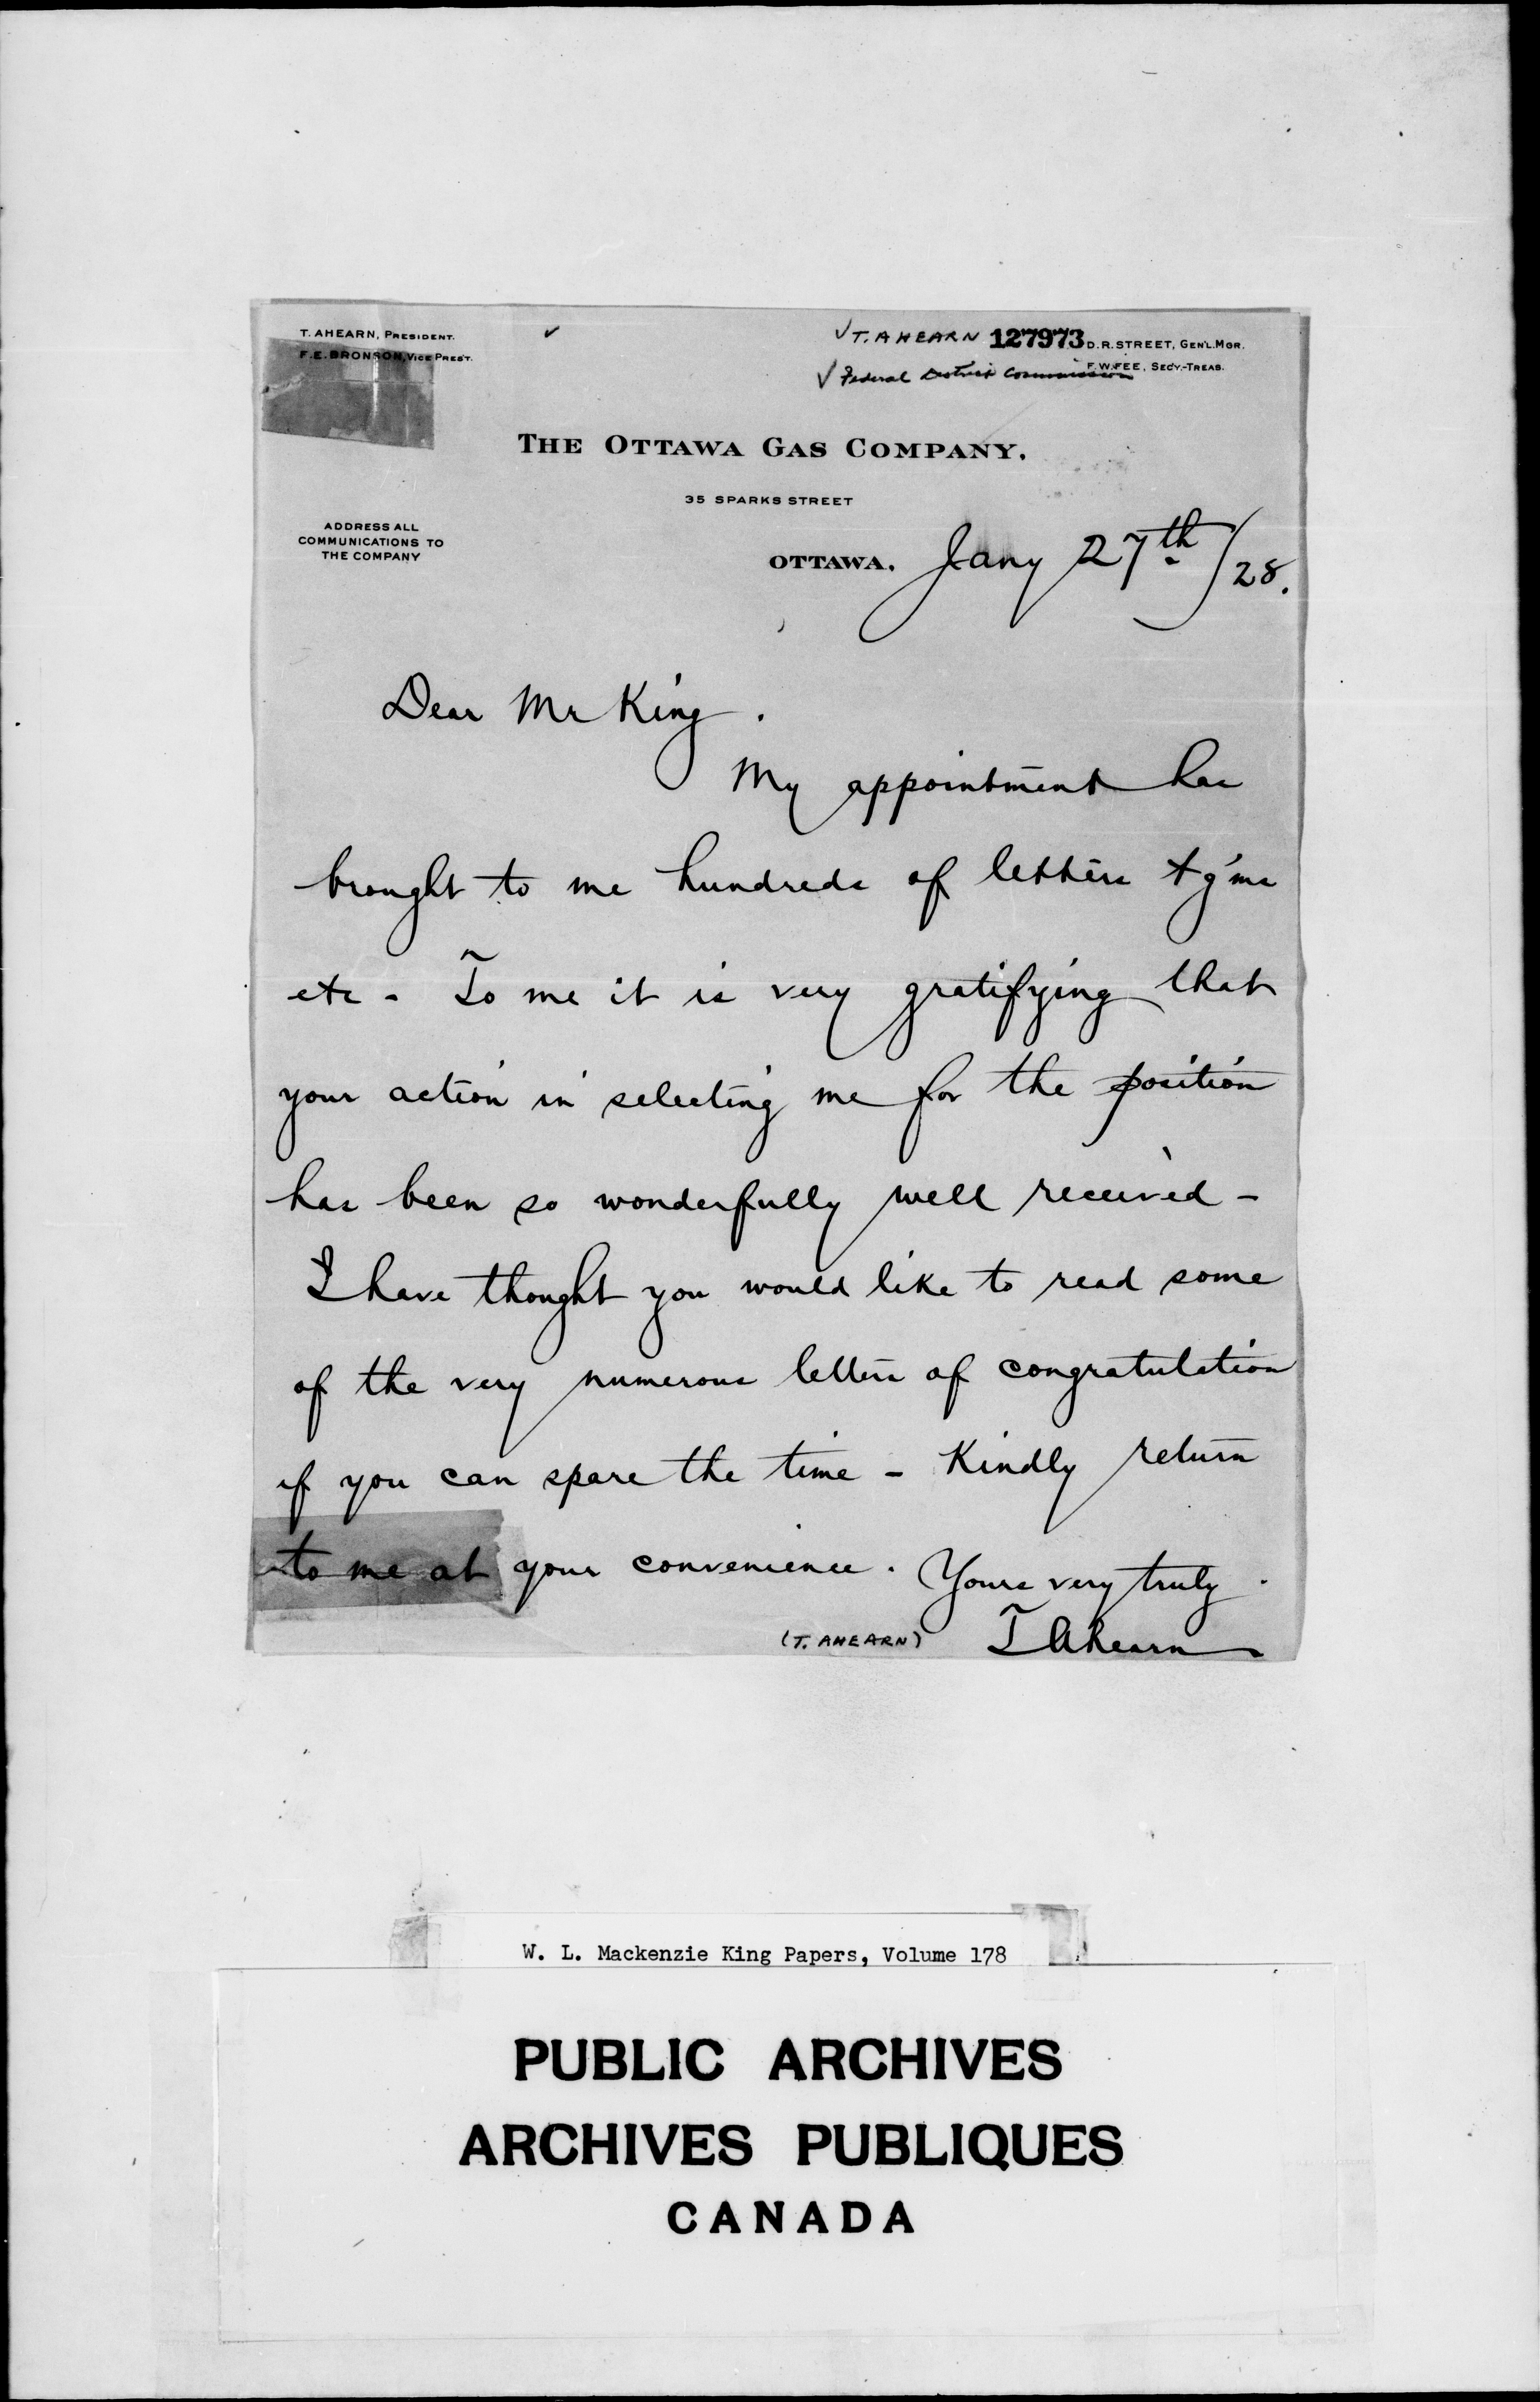 T. AHEARN, PRESIDENT.
F.E. BRONSON, VICE PREST.
✓
✓ T. AHEARN 127973 D.R. STREET, GEN'L. MGR.
✓ Federal District Commission F.W. FEE, SEC'Y.-TREAS.
THE OTTAWA GAS COMPANY.
35 SPARKS STREET
ADDRESS ALL
COMMUNICATIONS TO
THE COMPANY
OTTAWA. Jany 27th/28.
Dear Mr King.
My appointment has
brought to me hundreds of letters t'g'ms
etc - To me it is very gratifying that
your action in selecting me for the position
has been so wonderfully well received -
I have thought you would like to read some
of the very numerous letters of congratulation
if you can spare the time - Kindly return
to me at your convenience. Yours very truly.
(T. AHEARN) T Ahearn
W. L. Mackenzie King Papers, Volume 178
PUBLIC ARCHIVES
ARCHIVES PUBLIQUES
CANADA